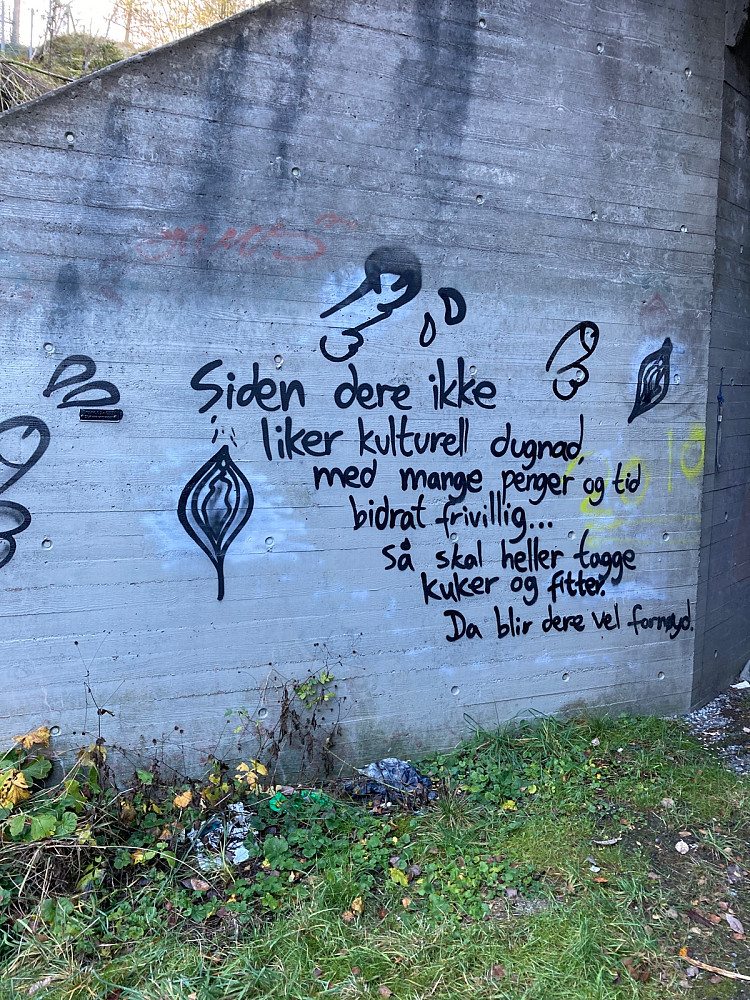 Siden dere ikke
liker kulturell dugnad,
med mange penger og tid
bidrat frivillig...
Så skal heller tagge
kuker og fitter.
Da blir dere vel fornøyd.